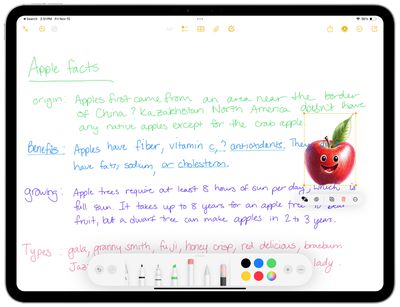 Search 2:51 PM Fri Nov 15
Apple facts
origin: Apples first came from an area near the border
of China & Kazakhstan. North America doesn't have
any native apples except for the crab apple
Benefits: Apples have fiber, vitamin c, & antioxidants. The
have fats, sodium, or cholesterol.
growing: Apple trees require at least 8 hours of sun per day, which is
full sun. It takes up to 8 years for an apple tree to bear
fruit, but a dwarf tree can make apples in 2 to 3 years.
Types: gala, granny smith, fuji, honey crisp, red delicious, braeburn
Jaz lady.